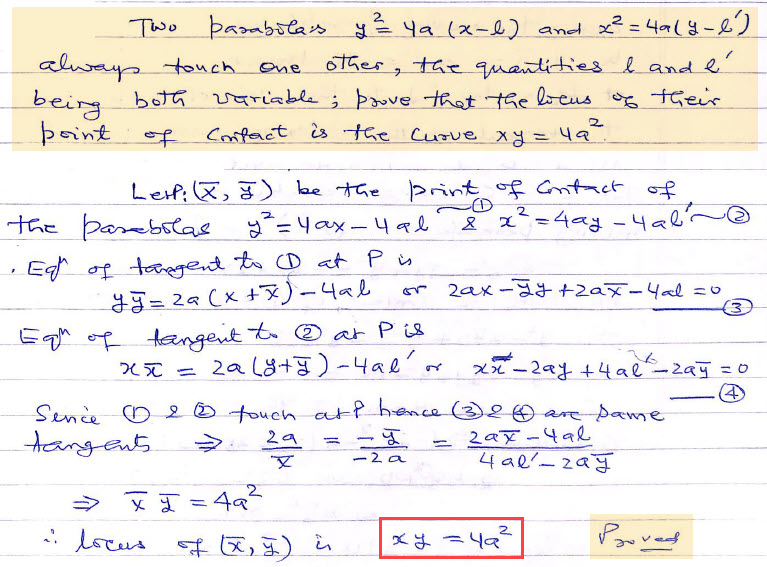 Two parabolas y² = 4a (x-l) and x² = 4a(y-l')
always touch one other, the quantities l and l'
being both variable; prove that the locus of their
point of contact is the curve xy = 4a².
Let P: (x̄, ȳ) be the point of contact of
the parabolas y² = 4ax - 4al ~ ① & x² = 4ay - 4al' ~ ②
. Eqⁿ of tangent to ① at P is
yȳ = 2a (x + x̄) - 4al or 2ax - ȳy + 2ax̄ - 4al = 0
— ③
Eqⁿ of tangent to ② at P is
xx̄ = 2a (y + ȳ) - 4al' or xx̄ - 2ay + 4al' - 2aȳ = 0
— ④
Sence ① & ② touch at P hence ③ & ④ are same
tangents ⇒ 2a/x̄ = -ȳ/-2a = 2ax̄ - 4al/4al' - 2aȳ
⇒ x̄ ȳ = 4a²
∴ locus of (x̄, ȳ) is xy = 4a² Proved